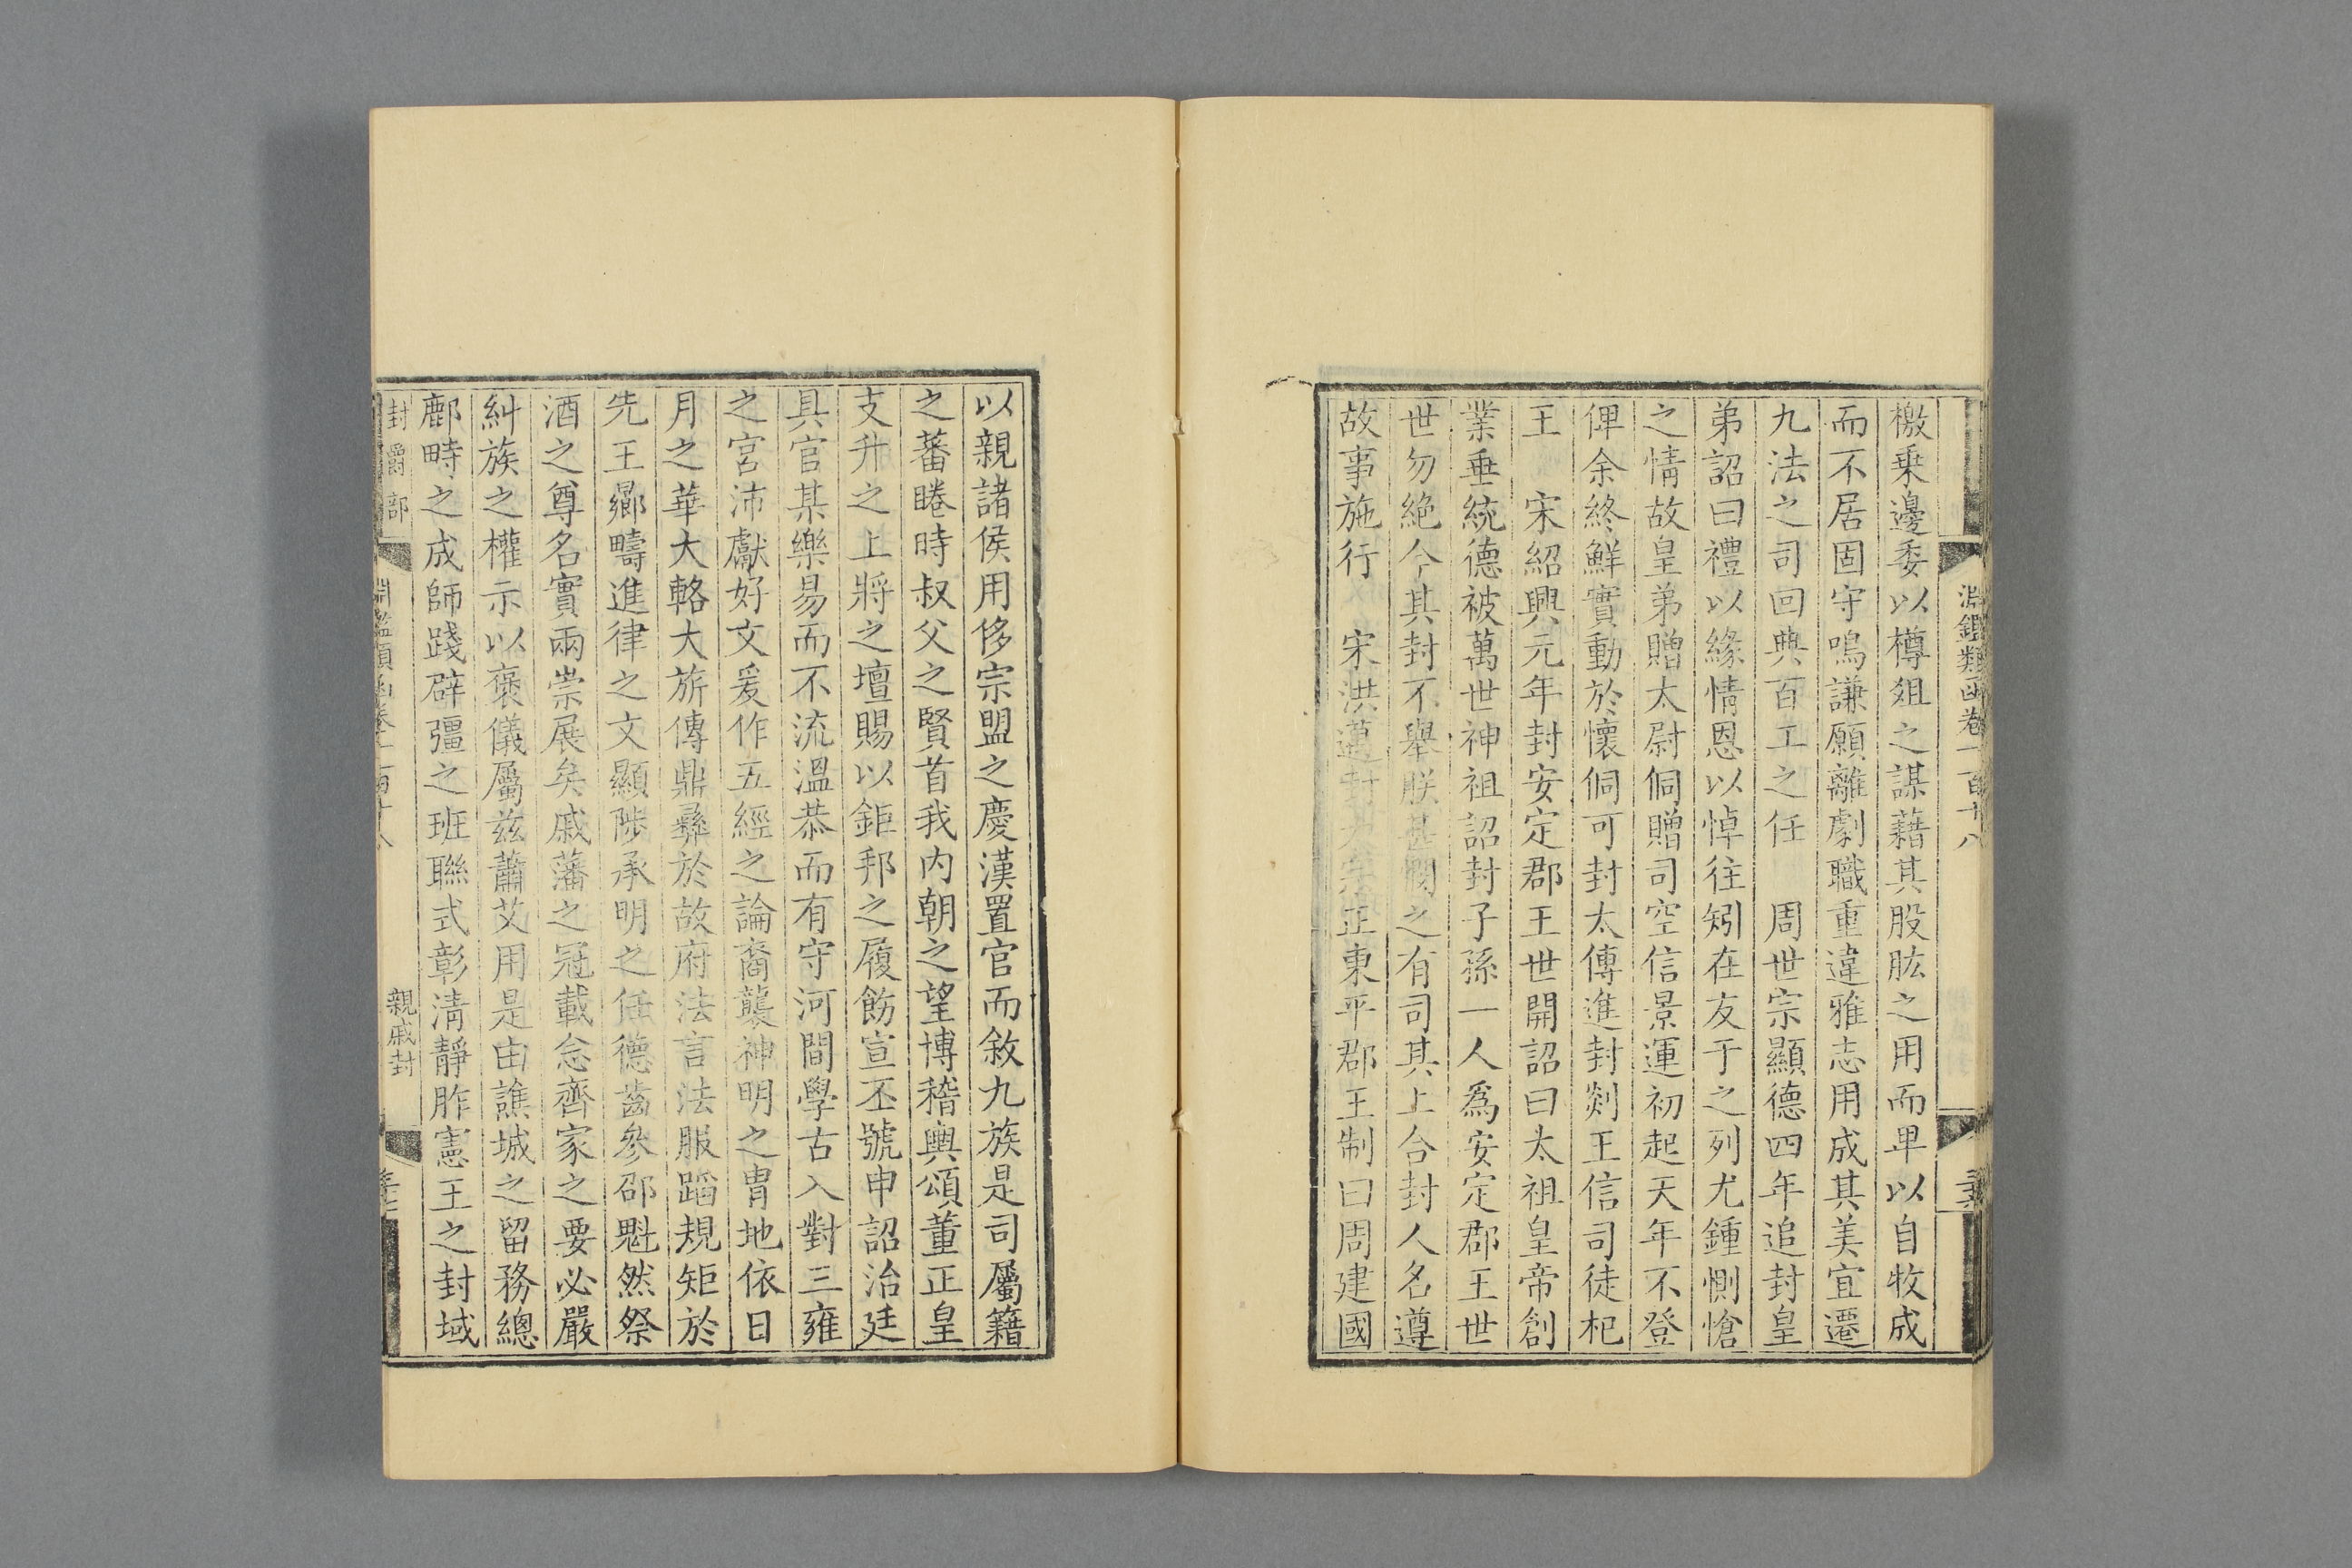 淵鑑類函卷一百十八
檄乗邊委以樽俎之謀藉其股肱之用而卑以自牧成
而不居固守鳴謙願離劇職重違雅志用成其美宜遷
九法之司回典百工之任　周世宗顯德四年追封皇
弟詔曰禮以緣情恩以悼往矧在友于之列尤鍾惻愴
之情故皇弟贈太尉侗贈司空信景運初起天年不登
俾余終鮮實動於懷侗可封太傅進封剡王信司徒杞
王　宋紹興元年封安定郡王世開詔曰太祖皇帝創
業垂統德被萬世神祖詔封子孫一人爲安定郡王世
世勿絶今其封不舉朕甚憫之有司其上合封人名遵
故事施行　宋洪邁封大宗正東平郡王制曰周建國
以親諸侯用侈宗盟之慶漢置官而敘九族是司屬籍
之蕃睠時叔父之賢首我内朝之望博稽輿頌董正皇
支升之上將之壇賜以鉅邦之履飭宣丕號申詔治廷
具官某樂易而不流溫恭而有守河間學古入對三雍
之宮沛獻好文爰作五經之論裔襲神明之胄地依日
月之華大輅大旂傳鼎彝於故府法言法服蹈規矩於
先王鄉疇進律之文顯陟承明之任德齒參邵魁然祭
酒之尊名實兩崇展矣戚藩之冠載念齊家之要必嚴
糾族之權示以褒儀屬兹蕭艾用是由譙城之留務總
鄜畤之成師踐辟彊之班聯式彰淸靜胙憲王之封域
封爵部
淵鑑類函卷一百十八
親戚封